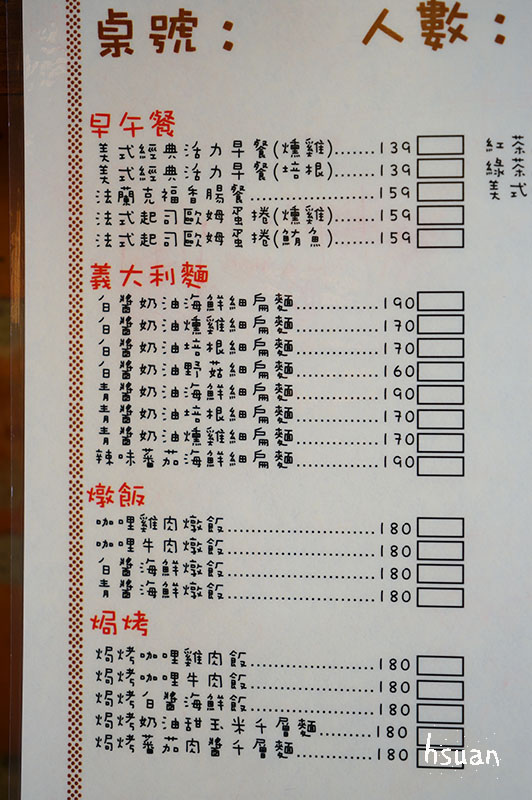 桌號： 人數：
早午餐
美式經典活力早餐(燻雞)......139
美式經典活力早餐(培根)......139
法蘭克福香腸餐..................159
法式起司歐姆蛋捲(燻雞)......159
法式起司歐姆蛋捲(鮪魚)......159
義大利麵
白醬奶油海鮮細扁麵............190
白醬奶油燻雞細扁麵............170
白醬奶油培根細扁麵............170
白醬奶油野菇細扁麵............160
青醬奶油海鮮細扁麵............190
青醬奶油培根細扁麵............170
青醬奶油燻雞細扁麵............170
辣味蕃茄海鮮細扁麵............190
燉飯
咖哩雞肉燉飯.....................180
咖哩牛肉燉飯.....................180
白醬海鮮燉飯.....................180
青醬海鮮燉飯.....................180
焗烤
焗烤咖哩雞肉飯..................180
焗烤咖哩牛肉飯..................180
焗烤白醬海鮮飯..................180
焗烤奶油甜玉米千層麵.........180
焗烤蕃茄肉醬千層麵............180
紅茶
綠茶
美式
hsuan